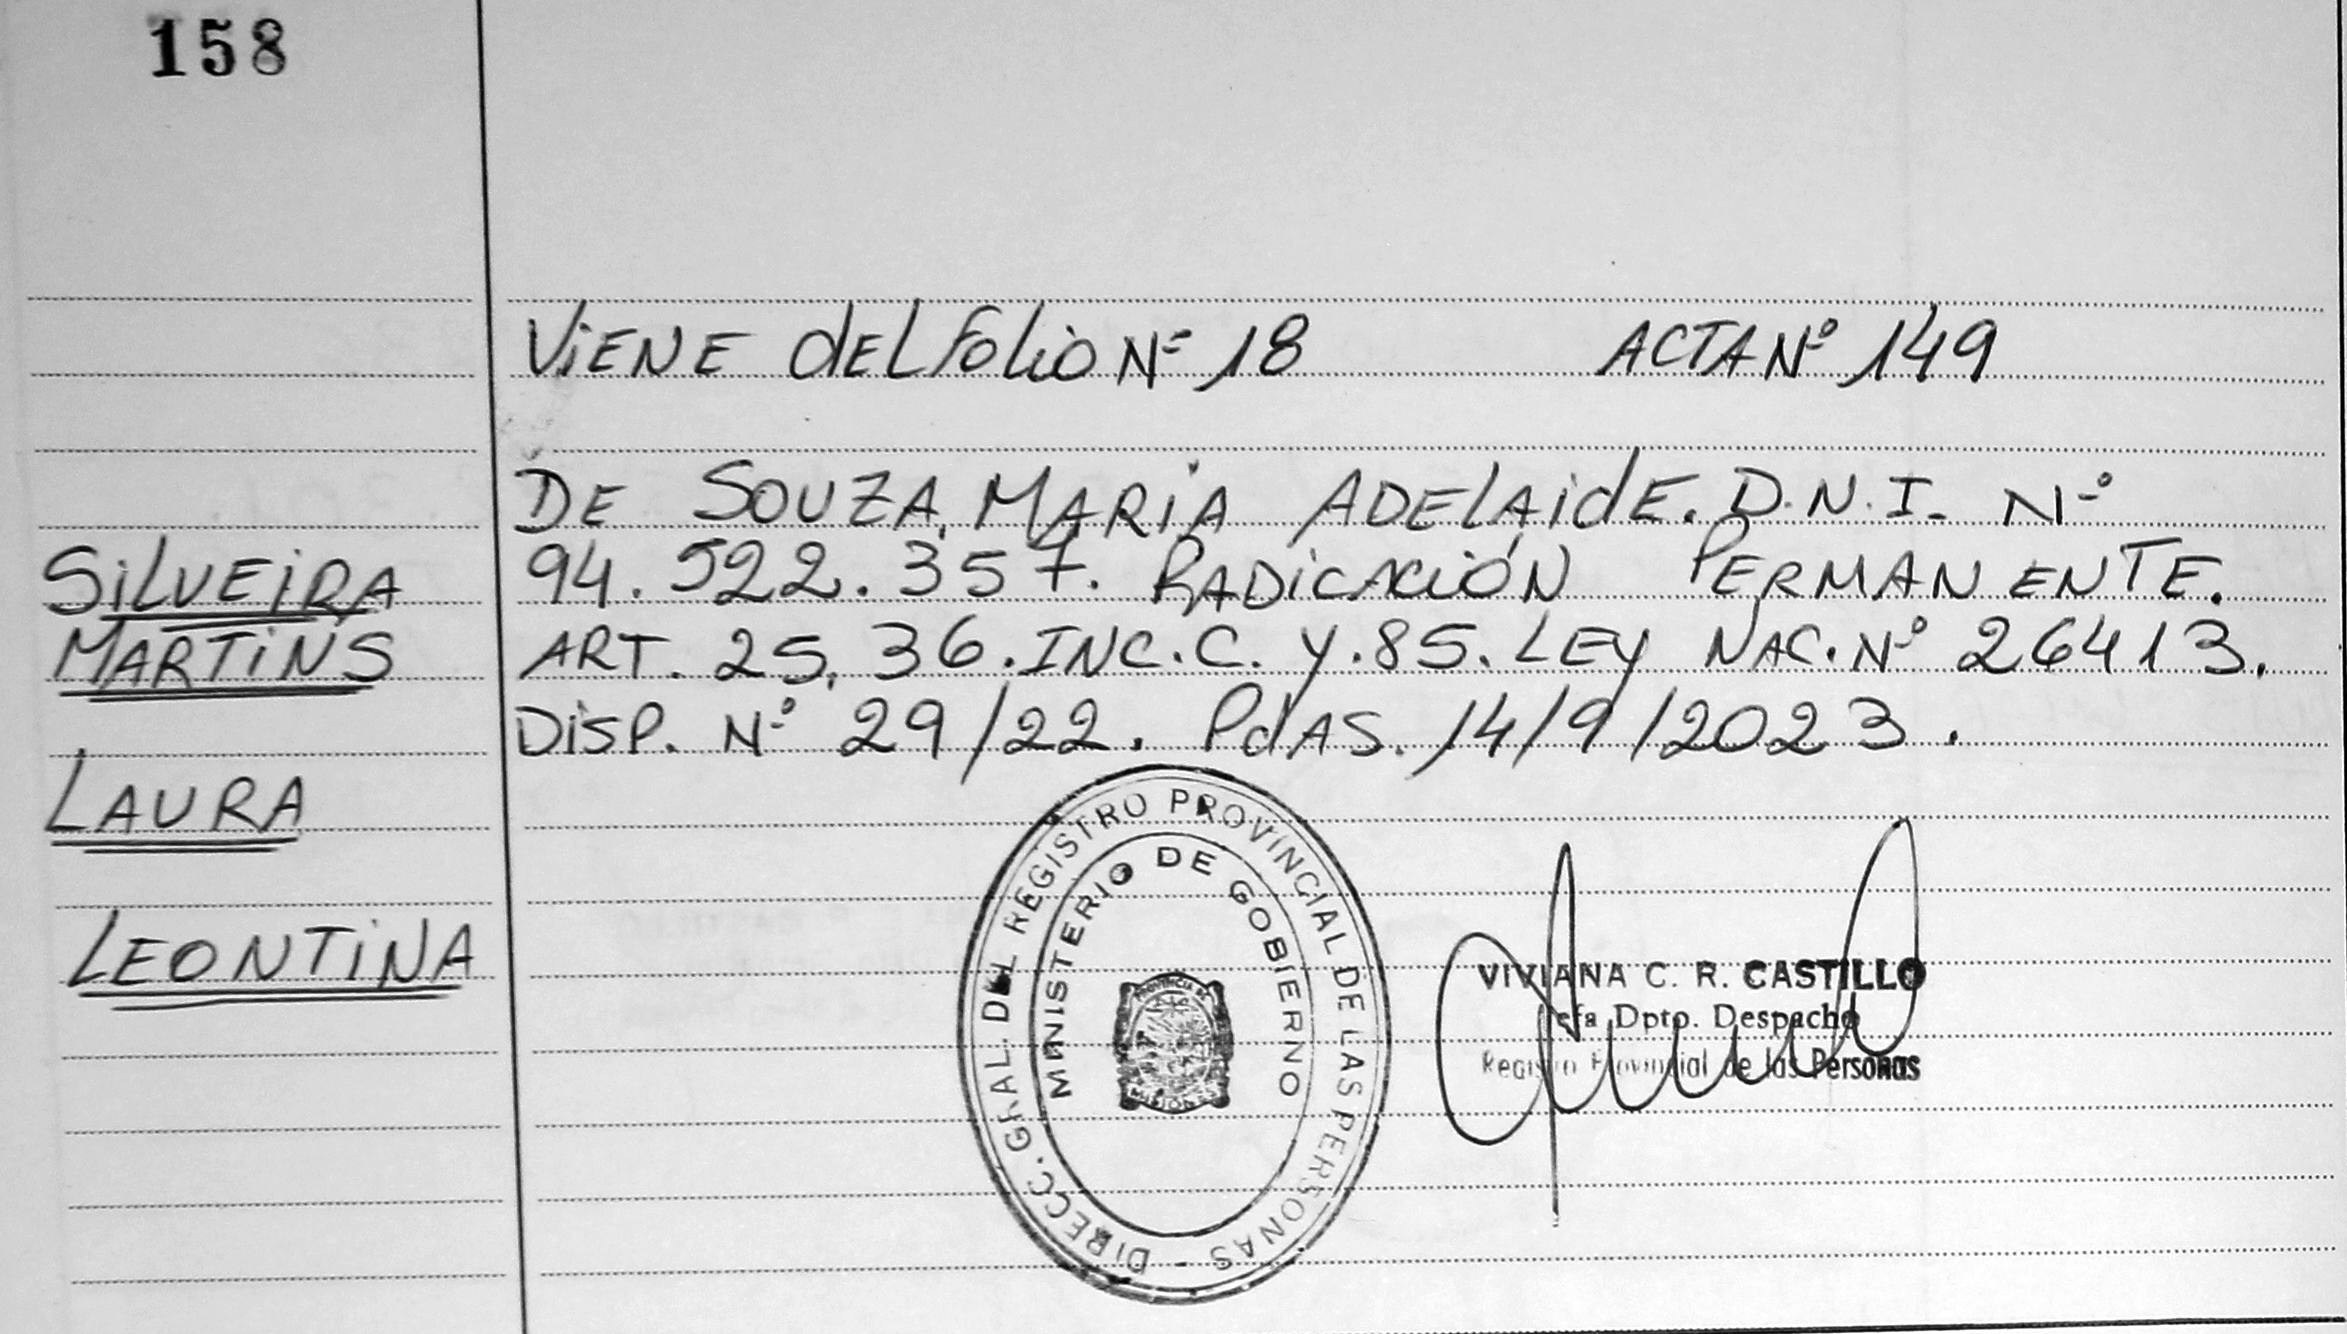 158
ViENE dEL Folio Nº 18 ACTA Nº 149
DE SOUZA, MARiA ADELAidE. D.N.I. Nº
94.522.357. RADiCACiÓN PERMANENTE.
ART. 25, 36. INC. C. Y. 85. LEY NAC. Nº 26413.
DiSP. Nº 29/22. PdAS. 14/9/2023.
SiLVEiRA
MARTiNS
LAURA
LEONTiNA
DIRECC. GRAL. DEL REGISTRO PROVINCIAL DE LAS PERSONAS -
MINISTERIO DE GOBIERNO
PROVINCIA DE
MISIONES
VIVIANA C. R. CASTILLO
Jefa Dpto. Despacho
Registro Provincial de las Personas